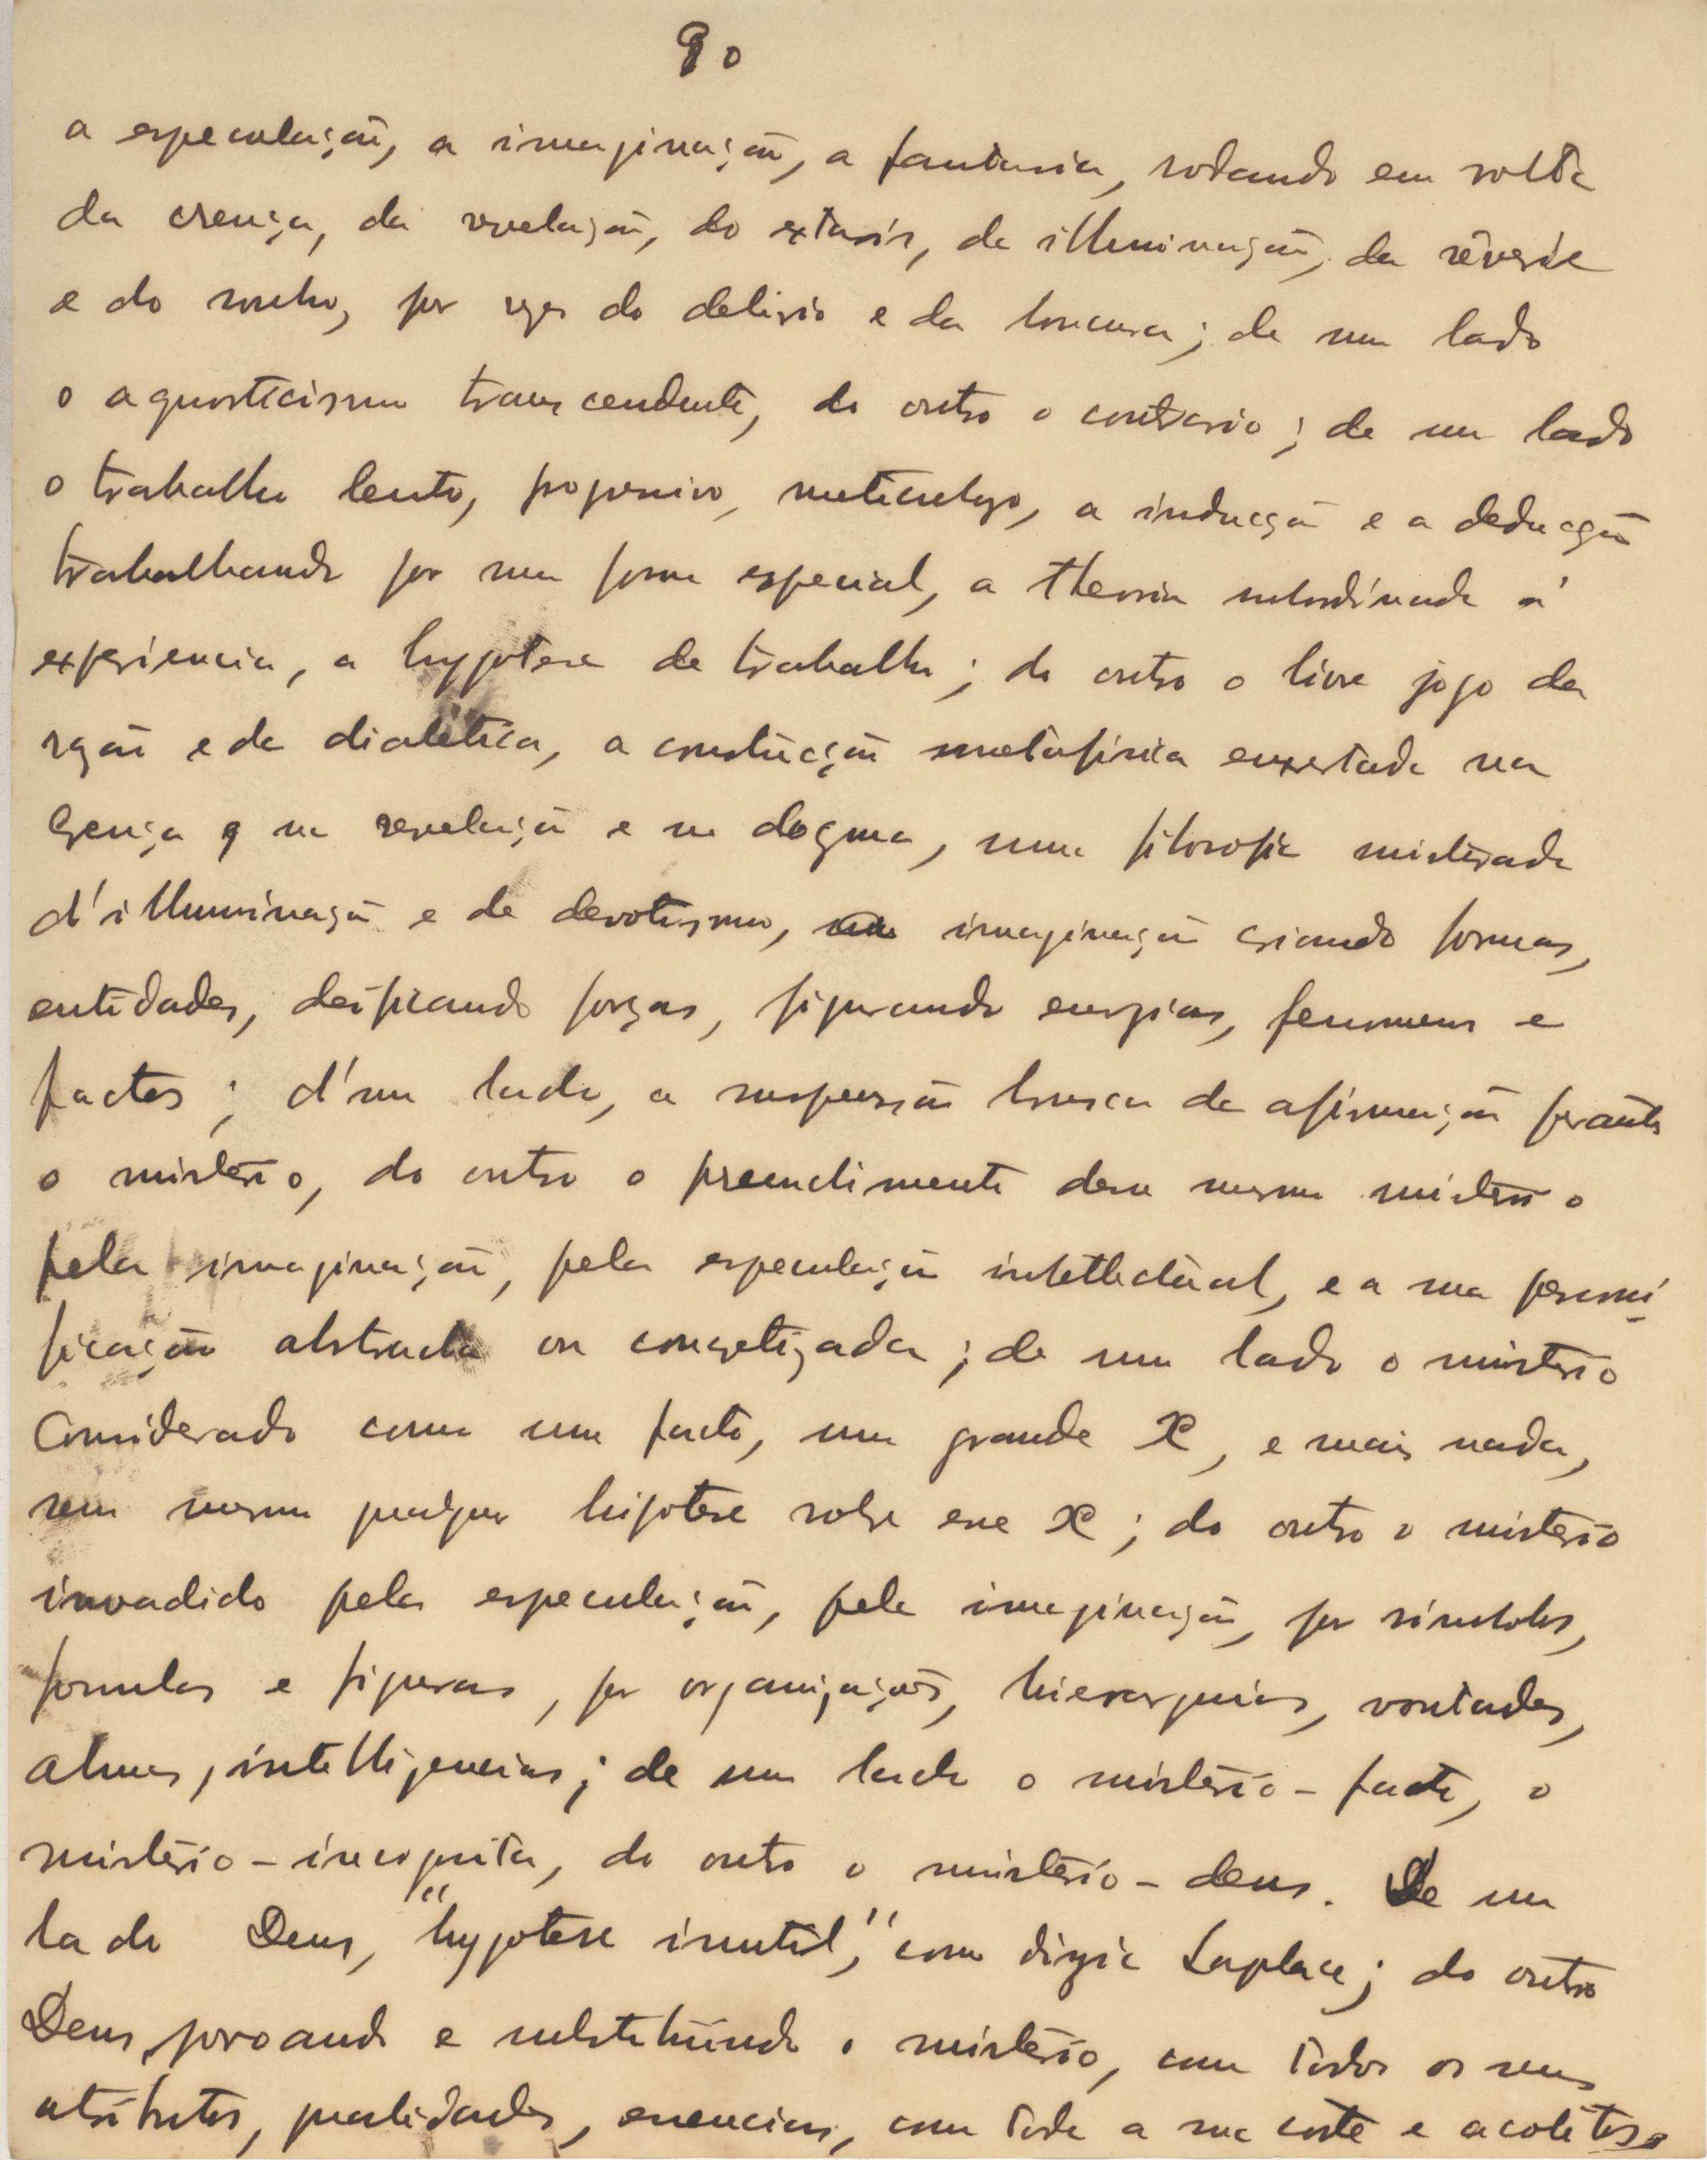 90
a especulação, a imaginação, a fantasia, rodando em volta
da crença, da revelação, do extasis, da illuminação, da rêverie
e do sonho, por vezes do delirio e da loucura; de um lado
o agnosticismo transcendente, do outro o contrario; de um lado
o trabalho lento, progressivo, meticuloso, a inducção e a deducção
trabalhando por uma forma especial, a theoria subordinada á
experiencia, a hypotese de trabalho; do outro o livre jogo da
rasão e da dialetica, a construcção metafisica enxertada na
crença, na revelação e no dogma, uma filosofia misturada
d'illuminação e de devotismo, imaginação criando formas,
entidades, deificando forças, figurando energias, fenomenos e
factos; d'um lado, a suspensão brusca da afirmação perante
o misterio, do outro o preenchimento desse mesmo misterio
pela imaginação, pela especulação intellectual, e a sua personi-
ficação abstracta ou concretizada; de um lado o misterio
considerado como um facto, um grande X, e mais nada,
sem mesmo qualquer hipotese sobre esse X; do outro o misterio
invadido pela especulação, pela imaginação, por simbolos,
formulas e figuras, por organizações, hierarquias, vontades,
almas, intelligencias; de um lado o misterio-facto, o
misterio-incognita, do outro o misterio-deus. De um
lado Deus, "hypotese inutil," como dizia Laplace; do outro
Deus povoando e substituindo o misterio, com todos os seus
atributos, qualidades, essencias, com toda a sua corte e acolitos